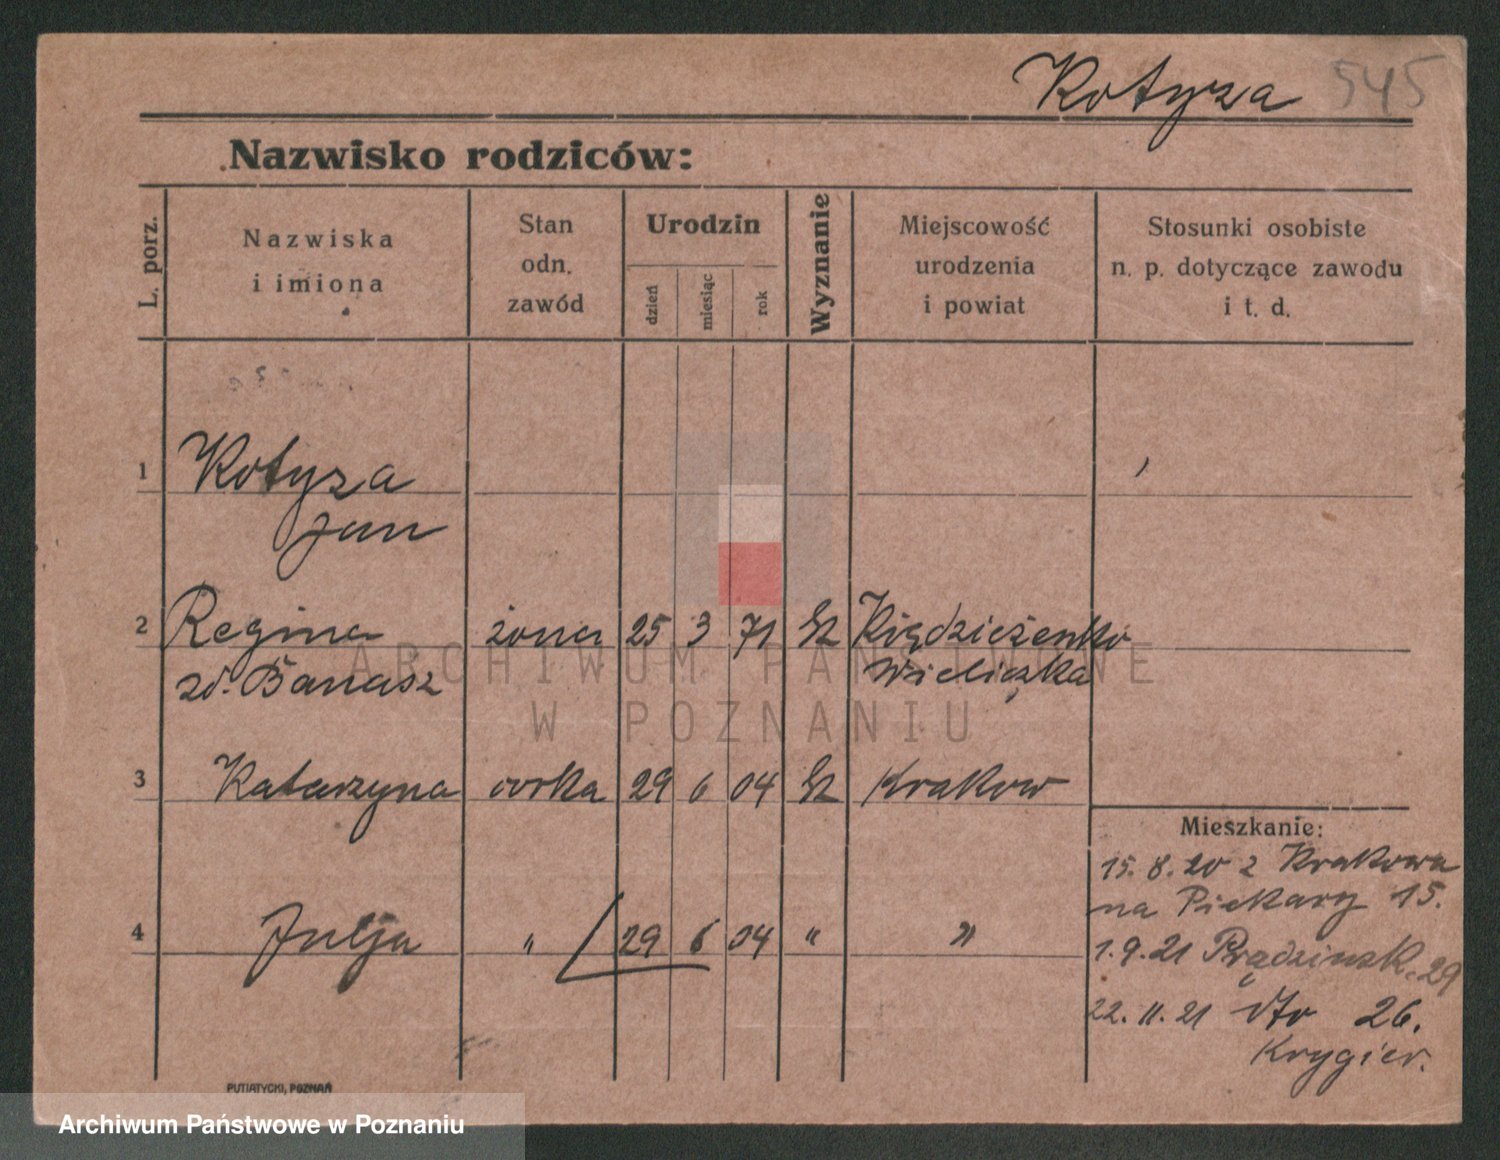 Kotyza 545
Nazwisko rodziców:
L. porz.
Nazwiska
i imiona
Stan
odn.
zawód
Urodzin
dzień
miesiąc
rok
Wyznanie
Miejscowość
urodzenia
i powiat
Stosunki osobiste
n. p. dotyczące zawodu
i t. d.
1 Kotyza
Jan
2 Regina żona 25 3 71
zd. Banasz Wieliczka
3 Katarzyna corka 29 6 04 Krakow
4 Julja " 29 6 04 " "
Mieszkanie:
15. 8. 20 z Krakowa
na Piekary 15.
1. 9. 21 Prądzinsk. 29
22. 11. 21 dto 26.
Krygier.
PUTIATYCKI, POZNAŃ
ARCHIWUM PAŃSTWOWE
W POZNANIU
Archiwum Państwowe w Poznaniu